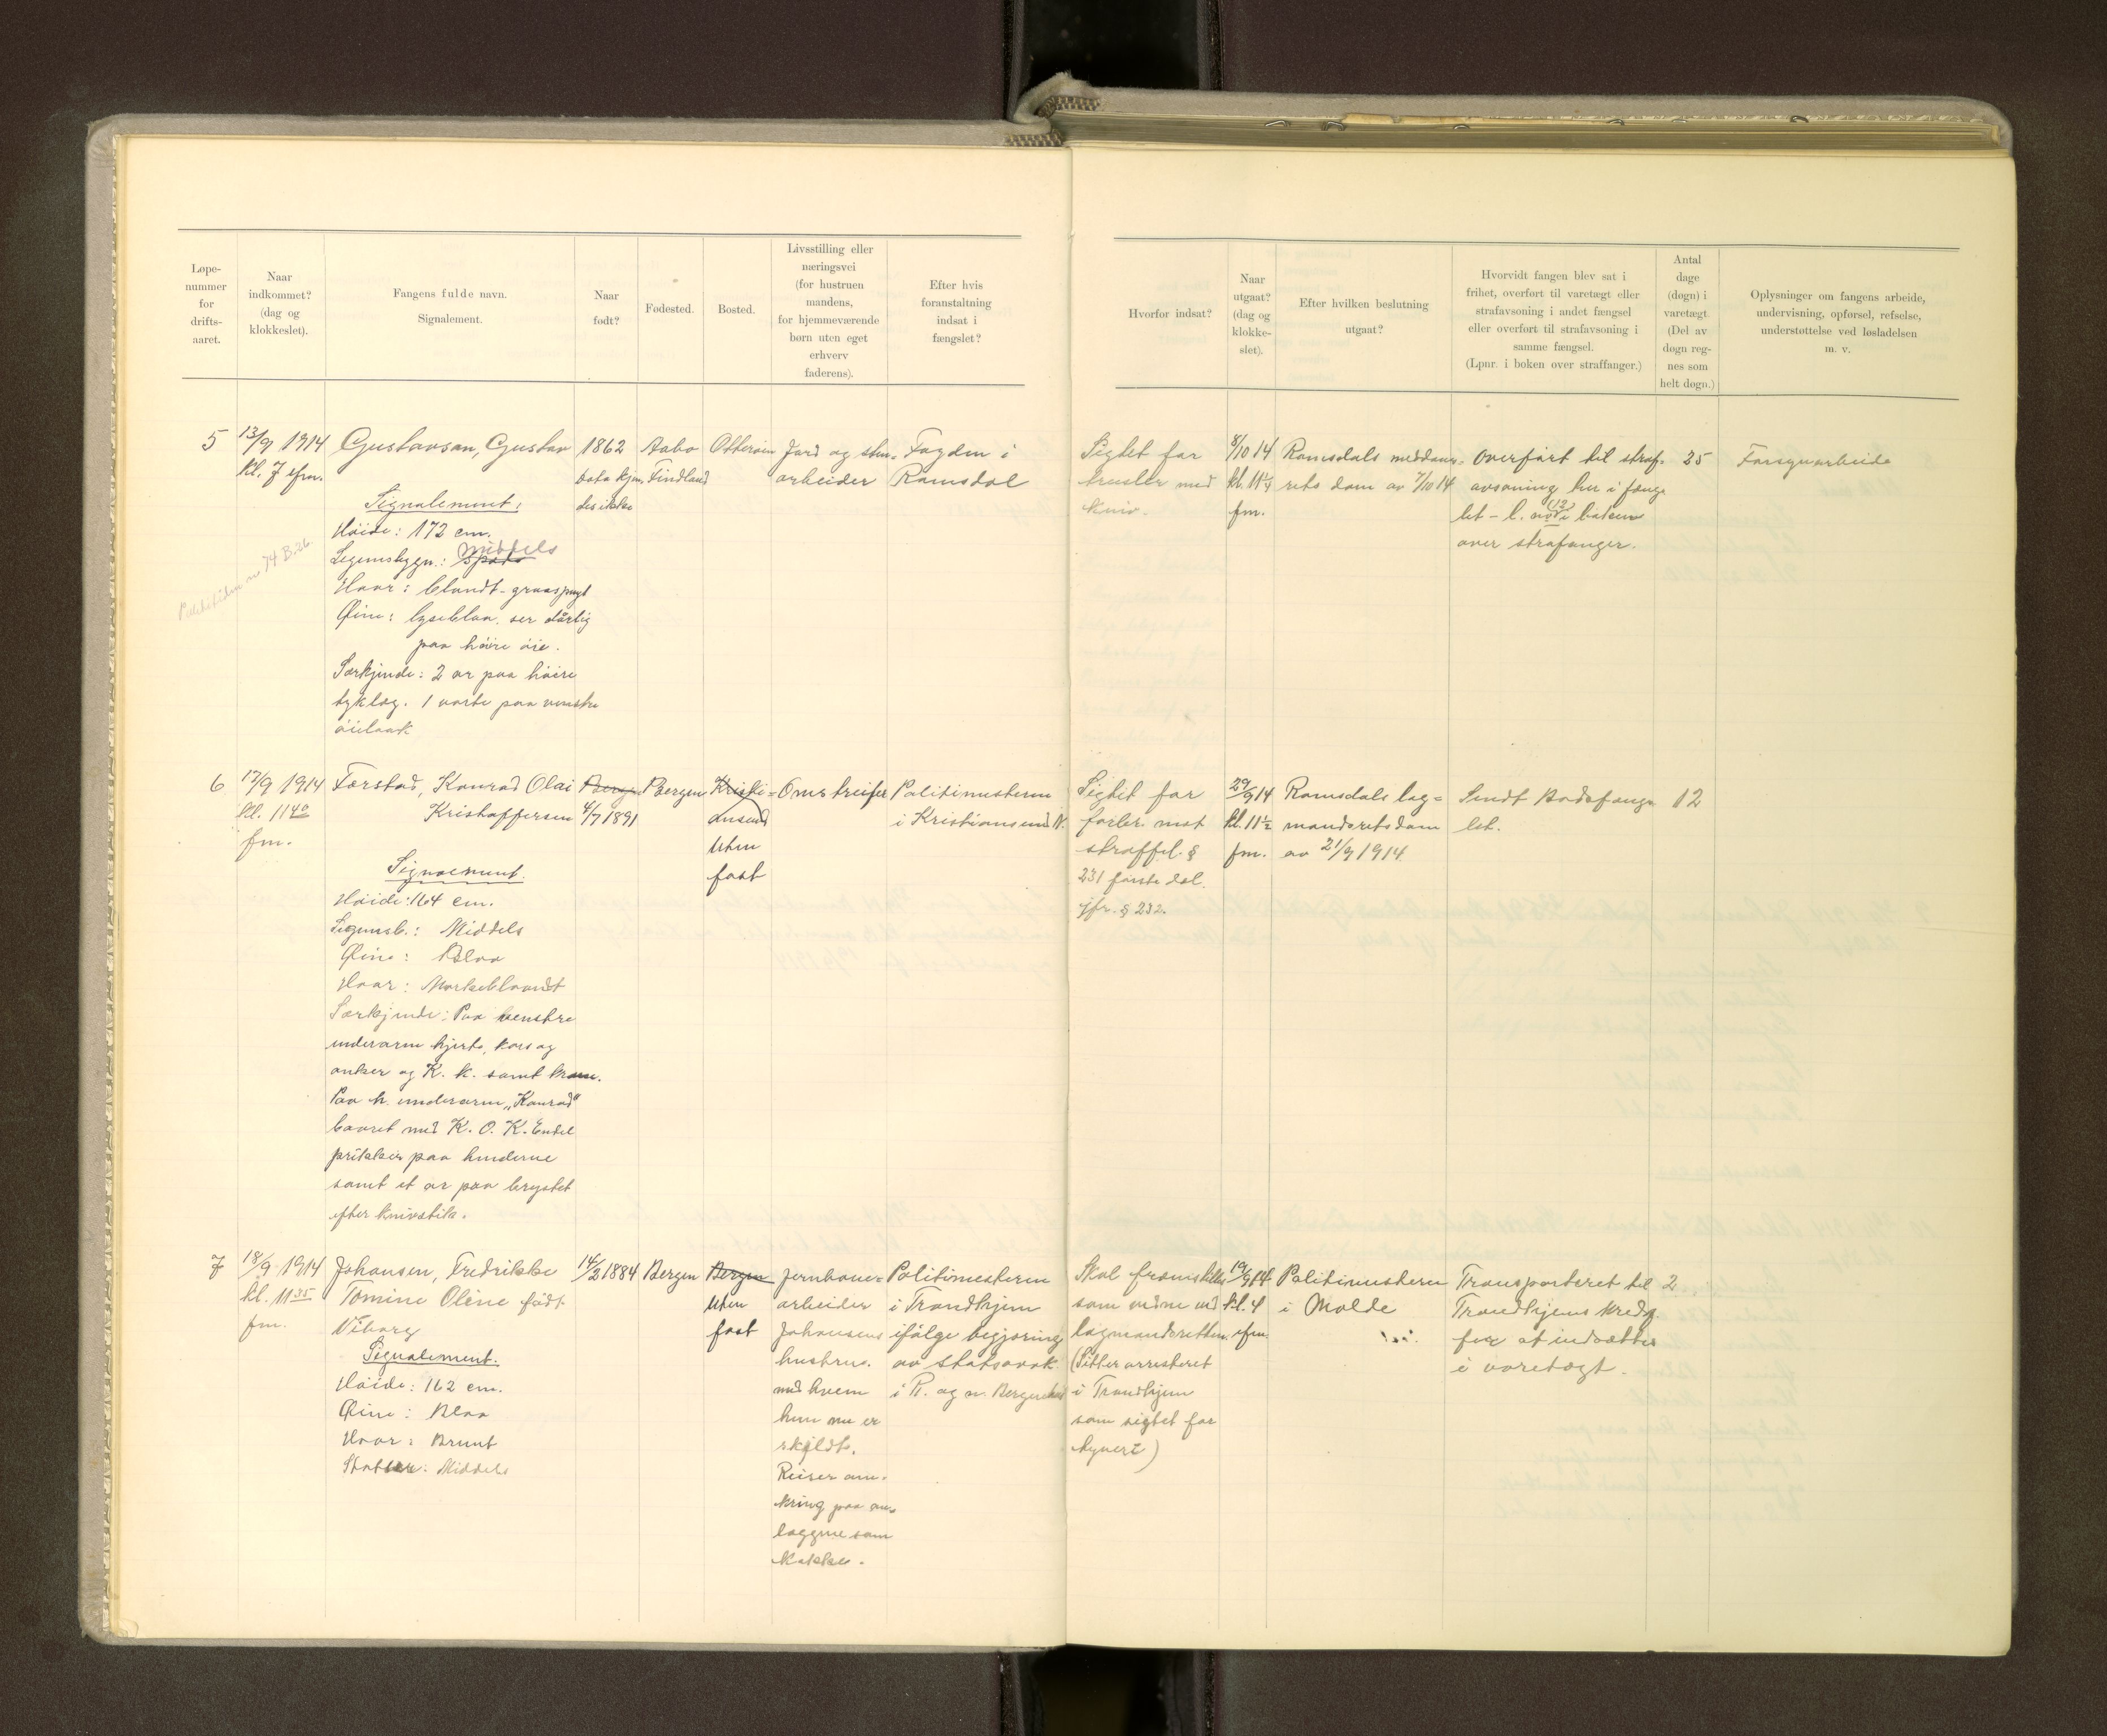 Løpe-
nummer
for
drifts-
aaret.
Naar
indkommet?
(dag og
klokkeslet).
Fangens fulde navn.
Signalement.
Naar
født?
Fødested.
Bosted.
Livsstilling eller
næringsvei
(for hustruen
mandens,
for hjemmeværende
børn uten eget
erhverv
faderens).
Efter hvis
foranstaltning
indsat i
fængslet?
Hvorfor indsat?
Naar
utgaat?
(dag og
klokke-
slet).
Efter hvilken beslutning
utgaat?
Hvorvidt fangen blev sat i
frihet, overført til varetægt eller
strafavsoning i andet fængsel
eller overført til strafavsoning i
samme fængsel.
(Lpnr. i boken over straffanger.)
Antal
dage
(døgn) i
varetægt.
(Del av
døgn reg-
nes som
helt døgn.)
Oplysninger om fangens arbeide,
undervisning, opførsel, refselse,
understøttelse ved løsladelsen
m. v.
5
13/9 1914
kl. 7 efm.
Gustavsan, Gustav
Signalement:
Høide: 172 cm.
Legemsbygn.: Middels
Haar: blondt-graasprengt
Øine: lyseblaa. ser dårlig
paa høire øie.
Særkjende: 2 ar paa høire
tyklæg. 1 vorte paa venstre
øielaak
1862
dato kjen
des ikke
Aabo
Findland
Otterøien
Jord og sten-
arbeider
Fogden i
Romsdal
Sigtet for
trusler med
kniv.
8/10 14
kl. 11¼
fm.
Romsdals meddoms-
rets dom av 7/10 14
Overført til straf-
avsoning her i fæng
let - l. nr (12) i boken
over strafanger.
25
Fangearbeide
Politetiden nr 74 B.26.
6
17/9 1914
kl. 11 40
fm.
Forstad, Konrad Olai
Kristoffersen
Signaement.
Høide: 164 cm.
Legemsb.: Middels
Øine: Blaa
Haar: Mørkeblondt
Særkjende: Paa venstre
underarm hjerte, kors og
anker og K. K. samt krans.
Paa h. underarm "Konrad"
baaret med K. O. K. Endel
prikker paa hænderne
samt et ar paa brystet
efter knivstik.
Bergen
4/7 1891
Bergen
Kristi-
ansund
Uten
fast
Omstreifer
Politimesteren
i Kristiansund N.
Sigtet for
forbr. mot
straffel. §
231 første del.
jfr. § 232.
29/9 14
kl. 11½
fm.
Romsdals lag=
mandsrets dom
av 21/9 1914.
Sendt Bodsfæng
let.
12
7
18/9 1914
kl. 11 35
fm.
Johansen, Fredrikke
Tomine Oline født
Viborg
Signalement.
Høide: 162 cm.
Øine: Blaa
Haar: Brunt
Middels
14/2 1884
Bergen
Bergen
Uten
fast
Jernbane=
arbeider
Johansens
hustru.
med hvem
hun nu er
skildt.
Reiser om-
kring paa an-
læggene som
kokke.
Politimesteren
i Trondhjem
ifølge begjæring
av statsadvok.
i R. og n. Bergenhus
Skal fremstilles
som vidne ved
lagmandsretten.
(Sitter arresteret
i Trondhjem
som sigtet for
tyveri)
19/9 14
kl. 4
efm.
Politimesteren
i Molde
Transporteret til
Trondhjems kredsf.
for at indsættes
i varetægt.
2